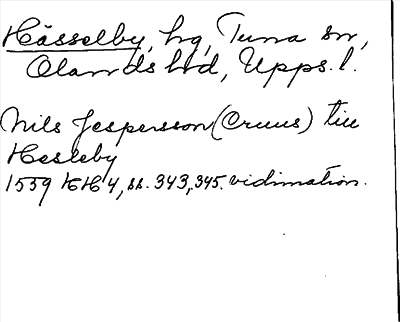 Hässelby, hg, Tuna sn,
Olands hd, Upps. l.
Nils Jespersson (Cruus) till
Hesleby
1559 HH 4, ss. 343, 345. vidimation.